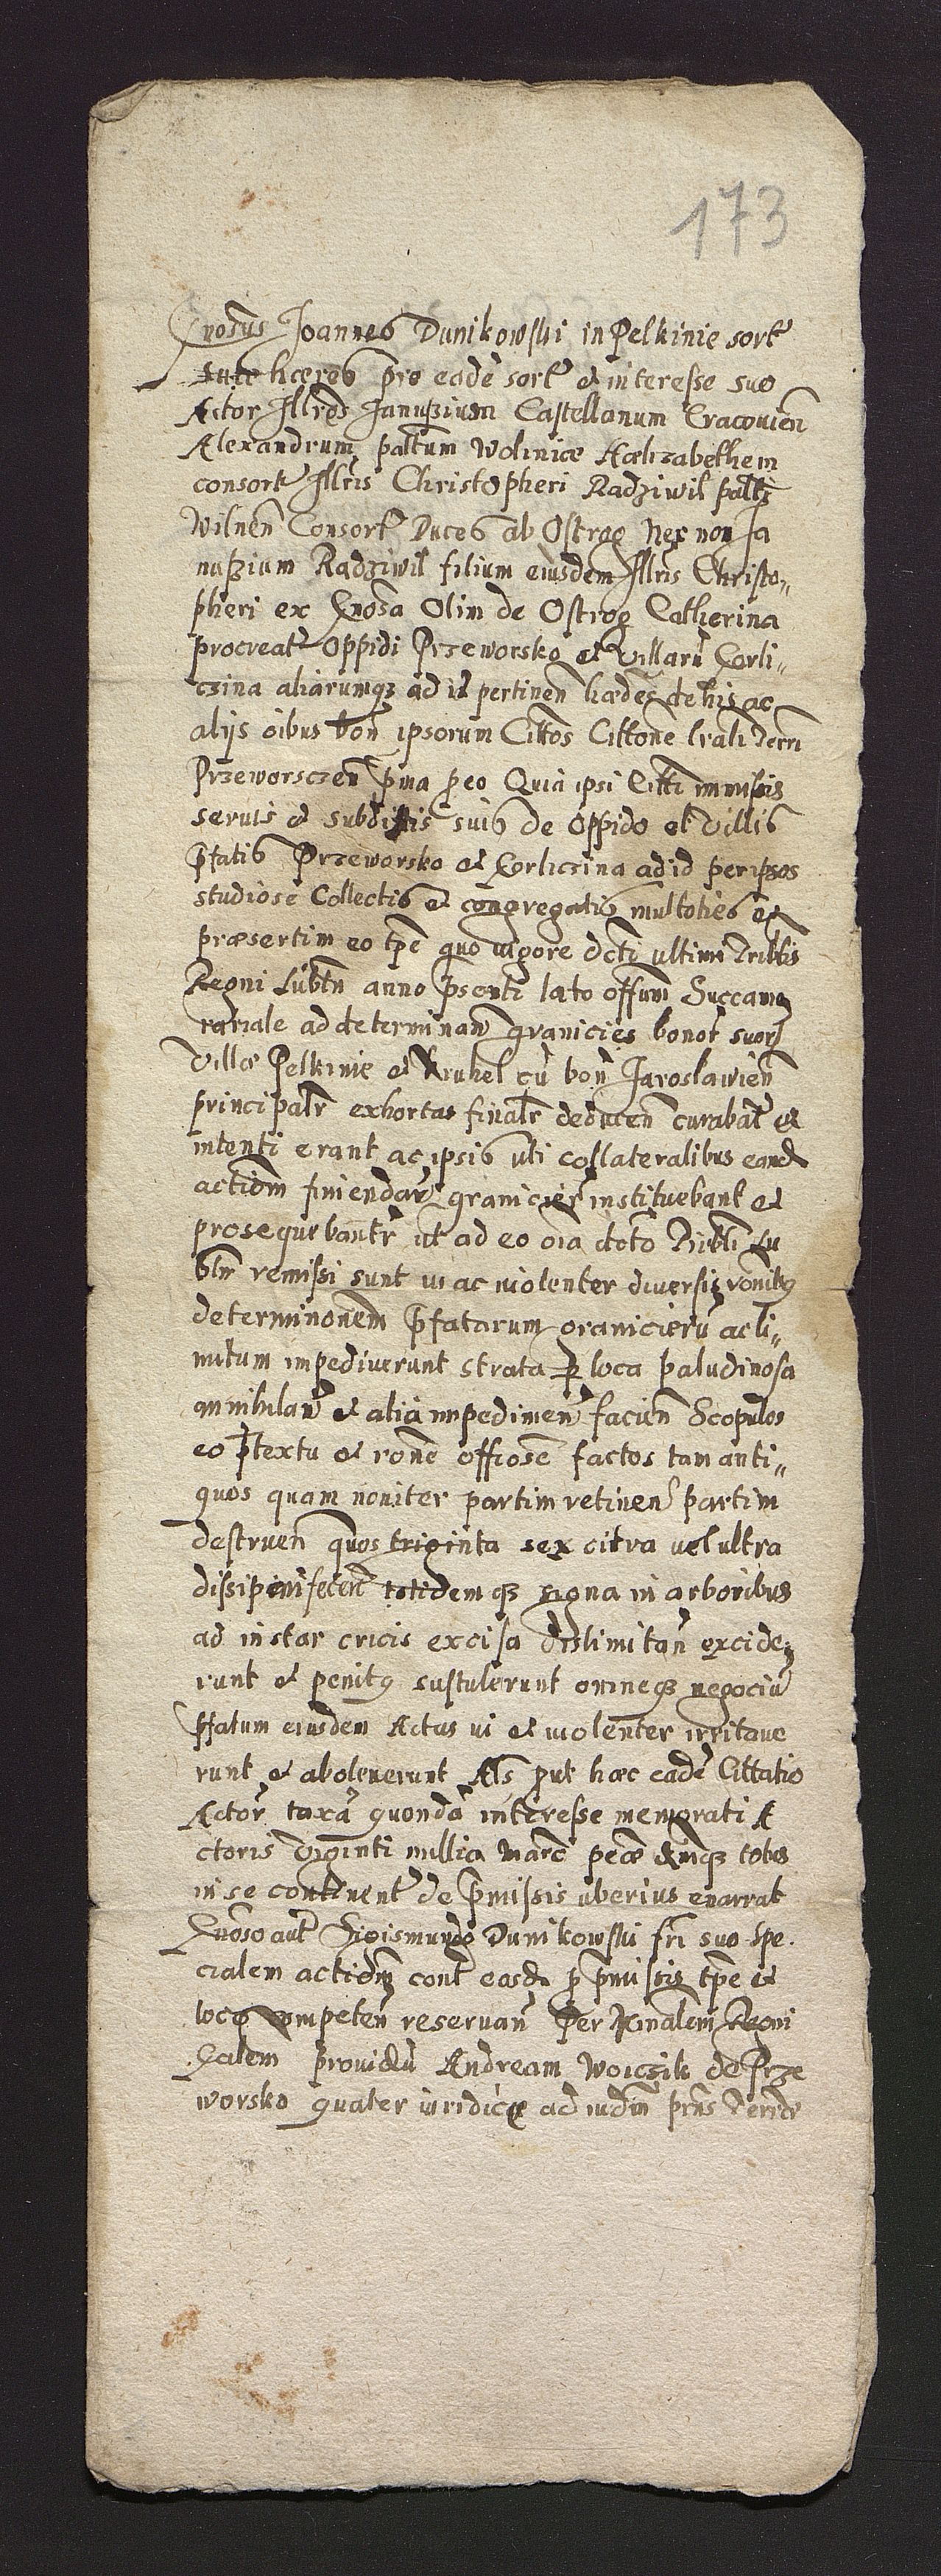 173
Gnosus Joannes Dunikowski in Pelkinie sort
suæ hæres pro eadē sort et interesse suo
Actor Illres Januszium Castellanum Cracouien
Alexandrum, paltum Woliniæ Hælizabethem
consort Illris Christopheri Radziwil palti
Wilnen Consort Duces ab Ostrog Nec non Ja
nuszium Radziwil filium eiusdem Illris Christo„
pheri ex Gnosa Olim de Ostrog Catherina
procreat Oppidi Przeworsko et Villarū Gorli„
czina aliarumqz ad id pertinen hædes de his ac
alijs oibus bon ipsorum Cittos Cittone
Przeworsczen pma peo Quia ipsi Citti immissis
seruis et subditis suis de Oppido et Villis
pfatis Przeworsko et Gorliczina ad id per ipsos
studiose Collectis et congregatis multoties et
præsertim eo tpe quo uigore dcti ultimi Triblis
Regni Lubln anno psenti lato offum Succame
rariale ad determinan granicies bonor suor
Villæ Pelkinie et Kruhel cū bon Jaroslawien
principalr exhortas finalr deducen curabat et
intenti erant ac ipsis uti collateralibus eand
actiom finiendar granicier instituebant et
prosequebantr ut ad eo oia dcto Tribli Lu
bln remissi sunt ui ac uiolenter diuersis
determinonem pfatarum granicierū ac li„
mitum impediuerunt strata p loca paludinosa
annihilan et alia impedimen facien Scopulos
eo ptextu et rone offiose factos tam anti„
quos quam nouiter partim retinen partim
destruen quos triginta sex citra uel ultra
totidemqz signa in arboribus
ad instar crucis excisa dislimitan excide„
runt et penitq sustulerunt omneqz negociū
pfatum eiusdem Actus ui et uiolenter irritaue
runt et aboleuerunt Als put hæc eadē Cittatio
Actor taxā quondā interesse memorati A
ctoris Viginti millia Marc pecæ tobs
in se continent de pmissis uberius enarrat
Gnoso aut Sigismundo Dunikowski fri suo spe.
cialem actiom cont easd p pmissis tpe et
loco competen reseruan Per Minalem Regni
Galem prouidū Andream Woiczik de Prze
worsko quater iuridice ad iudm pns